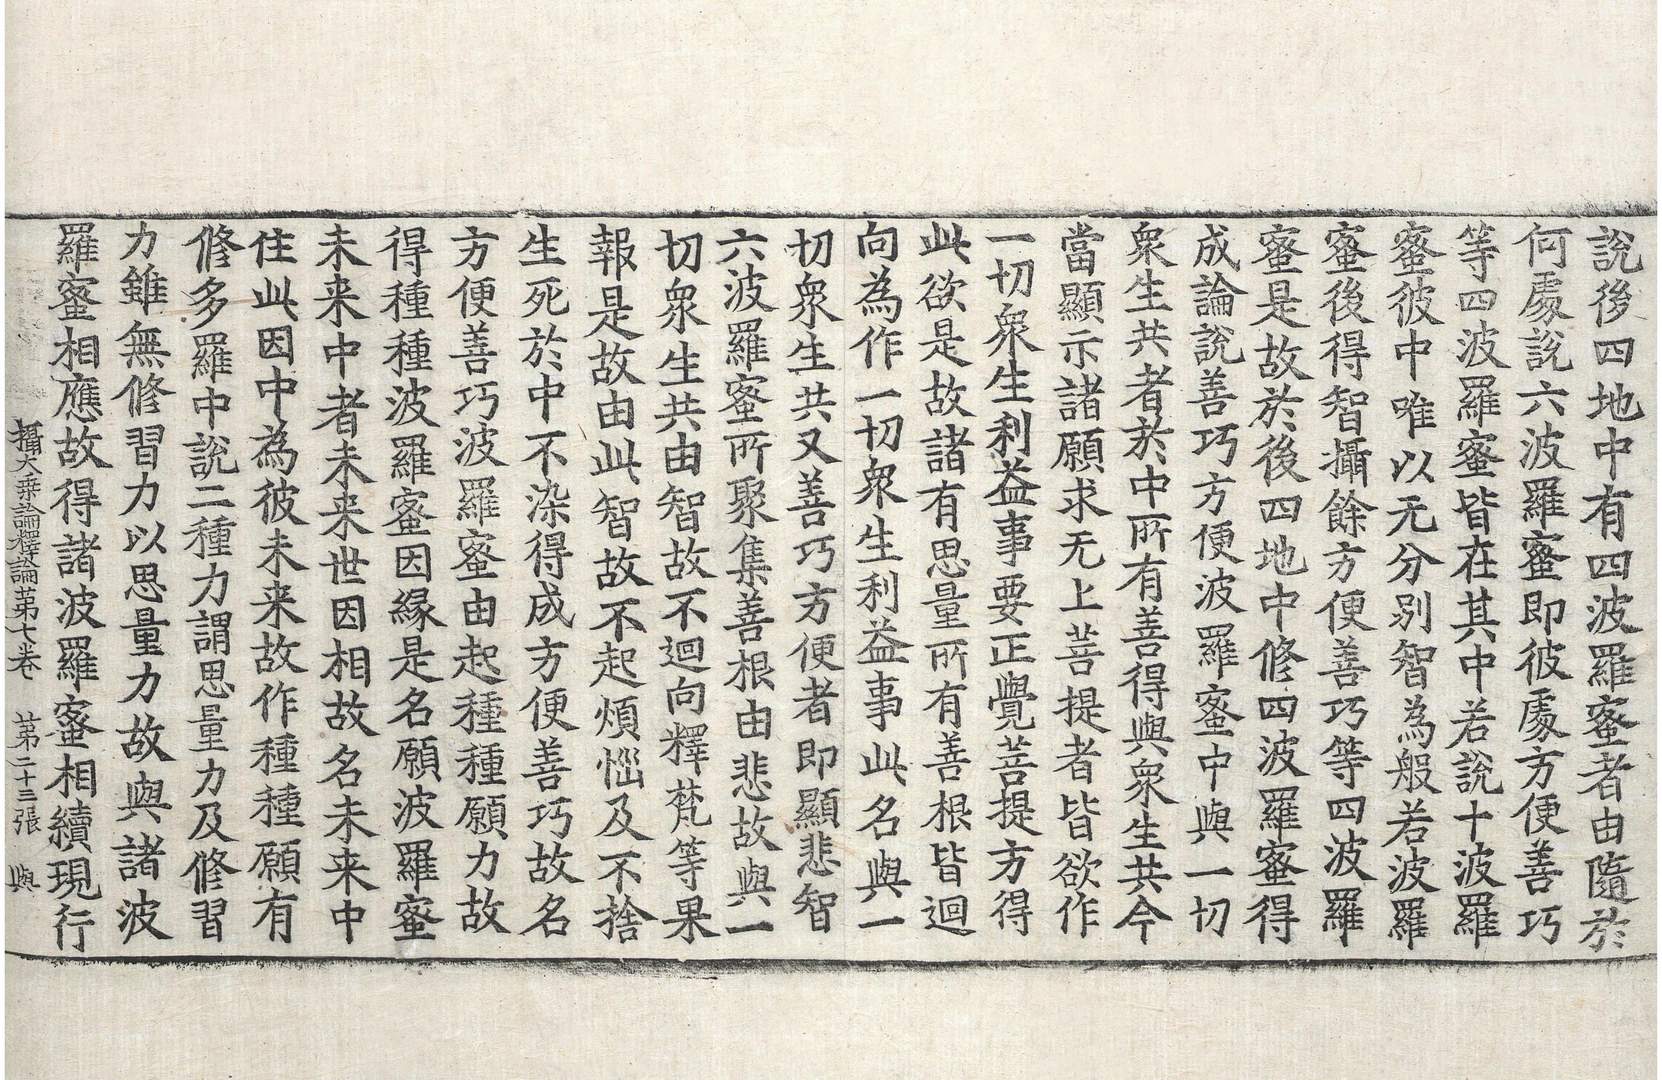 說後四地中有四波羅蜜者由隨於
何處說六波羅蜜即彼處方便善巧
等四波羅蜜皆在其中若說十波羅
蜜彼中唯以无分別智為般若波羅
蜜後得智攝餘方便善巧等四波羅
蜜是故於後四地中修四波羅蜜得
成論說善巧方便波羅蜜中與一切
衆生共者於中所有善得與衆生共今
當顯示諸願求无上菩提者皆欲作
一切衆生利益事要正覺菩提方得
此欲是故諸有思量所有善根皆迴
向為作一切衆生利益事此名與一
切衆生共又善巧方便者即顯悲智
六波羅蜜所聚集善根由悲故與一
切衆生共由智故不迴向釋梵等果
報是故由此智故不起煩惱及不捨
生死於中不染得成方便善巧故名
方便善巧波羅蜜由起種種願力故
得種種波羅蜜因緣是名願波羅蜜
未来中者未来世因相故名未来中
住此因中為彼未来故作種種願有
修多羅中說二種力謂思量力及修習
力雖無修習力以思量力故與諸波
羅蜜相應故得諸波羅蜜相續現行
攝大乘論釋論第七卷 第二十三張 與